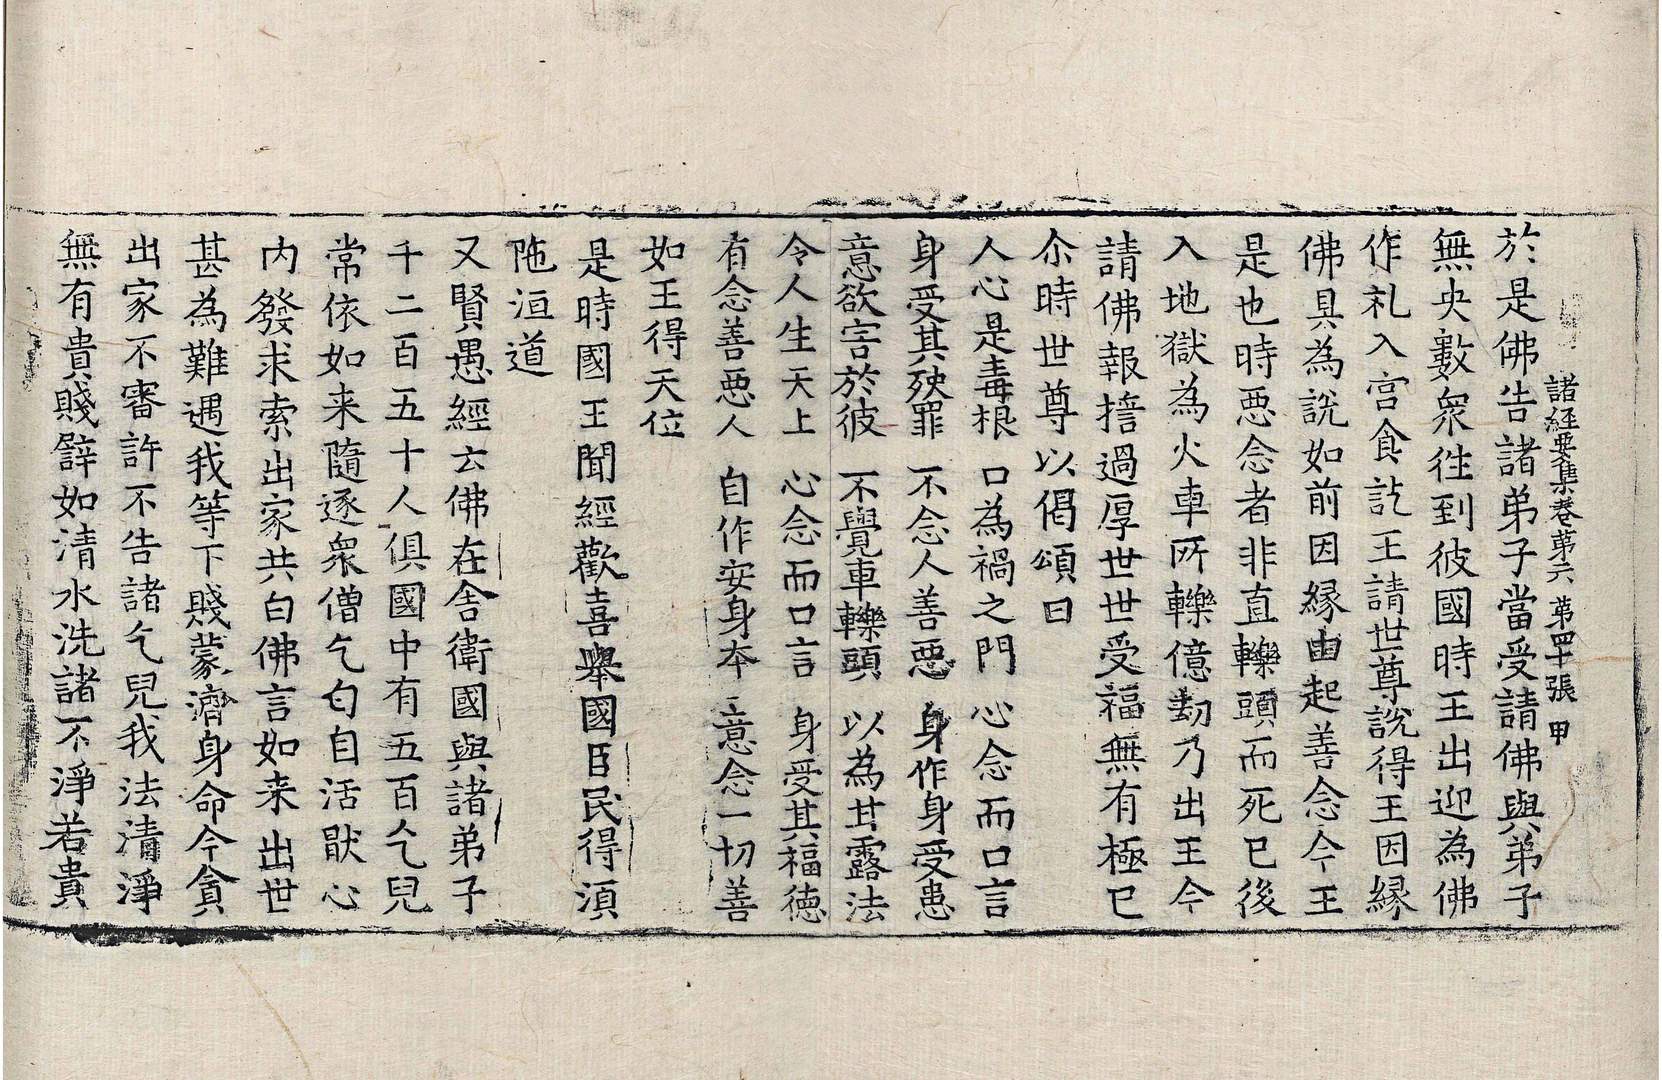 諸經要集卷第六 第四十張 甲
於是佛告諸弟子當受請佛與弟子
無央數衆徃到彼國時王出迎為佛
作礼入宫食訖王請世尊說得王因緣
佛具為說如前因緣由起善念今王
是也時惡念者非直轢頭而死已後
入地獄為火車所轢億劫乃出王今
請佛報擔過厚世世受福無有極已
尒時世尊以偈頌曰
人心是毒根 口為禍之門 心念而口言
身受其殃罪 不念人善惡 身作身受患
意欲害於彼 不覺車轢頭 以為甘露法
令人生天上 心念而口言 身受其福德
有念善惡人 自作安身本 意念一切善
如王得天位
是時國王聞經歡喜舉國臣民得湏
陁洹道
又賢愚經云佛在舍衛國與諸弟子
千二百五十人俱國中有五百乞兒
常依如来隨逐衆僧乞匂自活猒心
内發求索出家共白佛言如来出世
甚為難遇我等下賤蒙濟身命今貪
出家不審許不告諸乞兒我法清淨
無有貴賤辟如清水洗諸不淨若貴